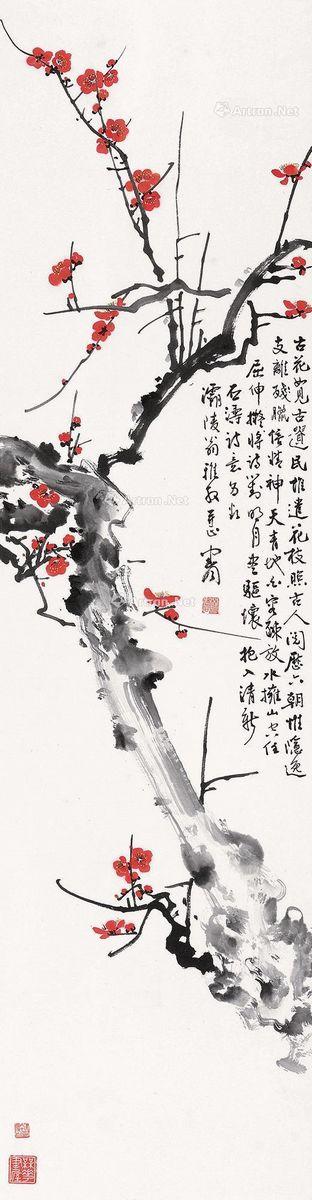 Artron.Net
古花如見古遺民誰遣花枝照古人閱歷六朝惟隱逸
支離殘臘倍精神天青地白容疎放水擁山空任
屈伸擬將詩對明月盡驅懷抱入清新
石濤詩意
灞陵翁雅教
Artron.Net
Artron.Net